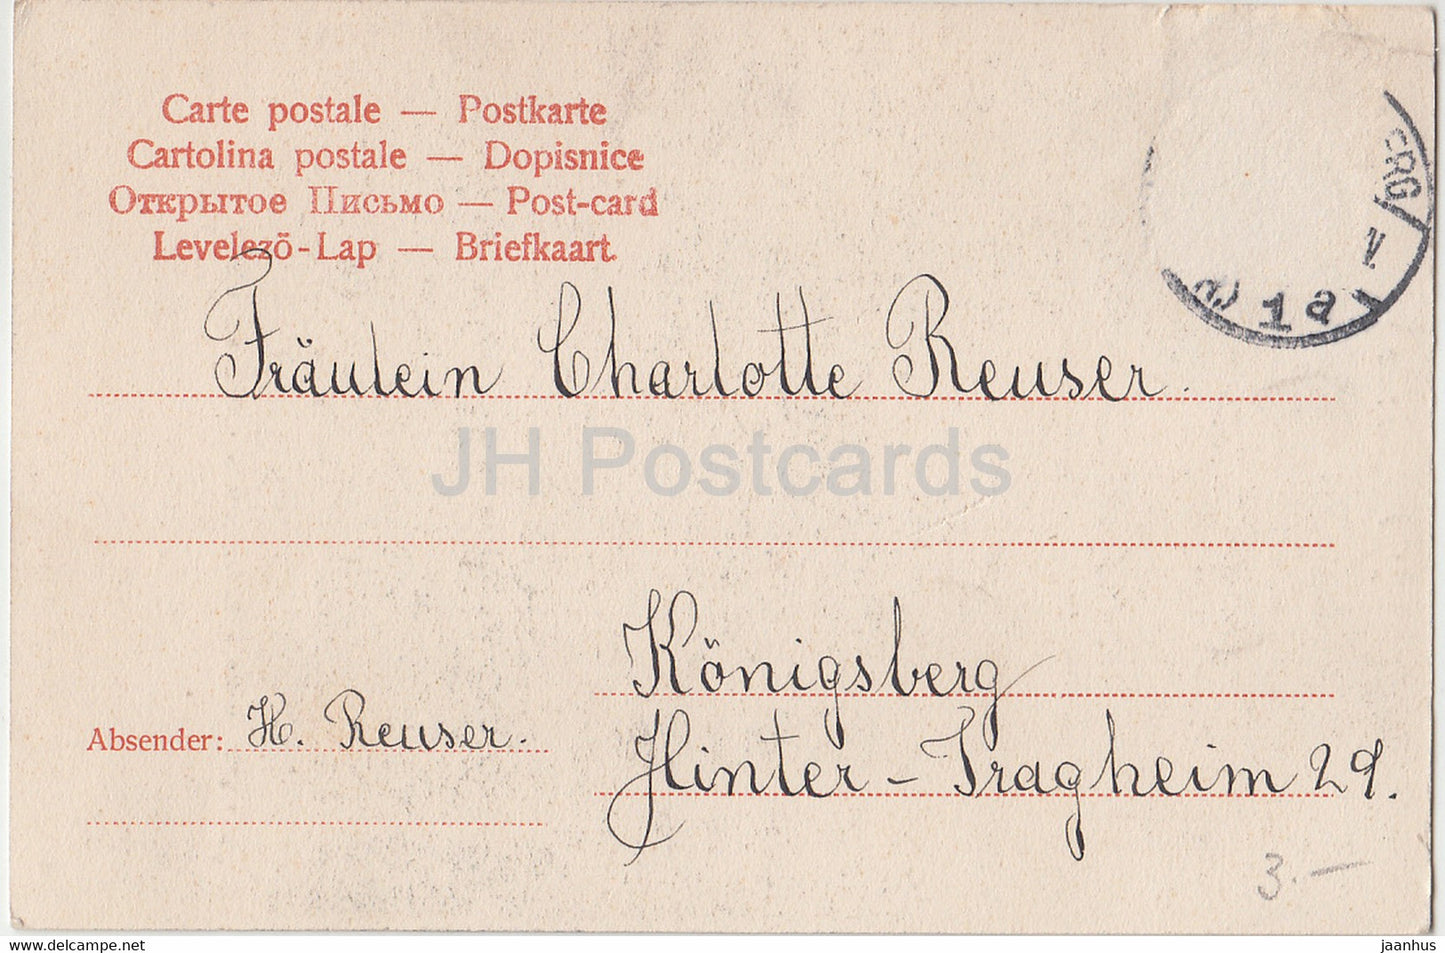 Carte postale — Postkarte
Cartolina postale — Dopisnice
Открытое Письмо — Post-card
Levelező-Lap — Briefkaart
ERG
V.
1a
Fräulein Charlotte Reuser.
JH Postcards
Königsberg
Absender: H. Reuser.
Hinter-Tragheim 29.
3.—
www.delcampe.net
jaanhus